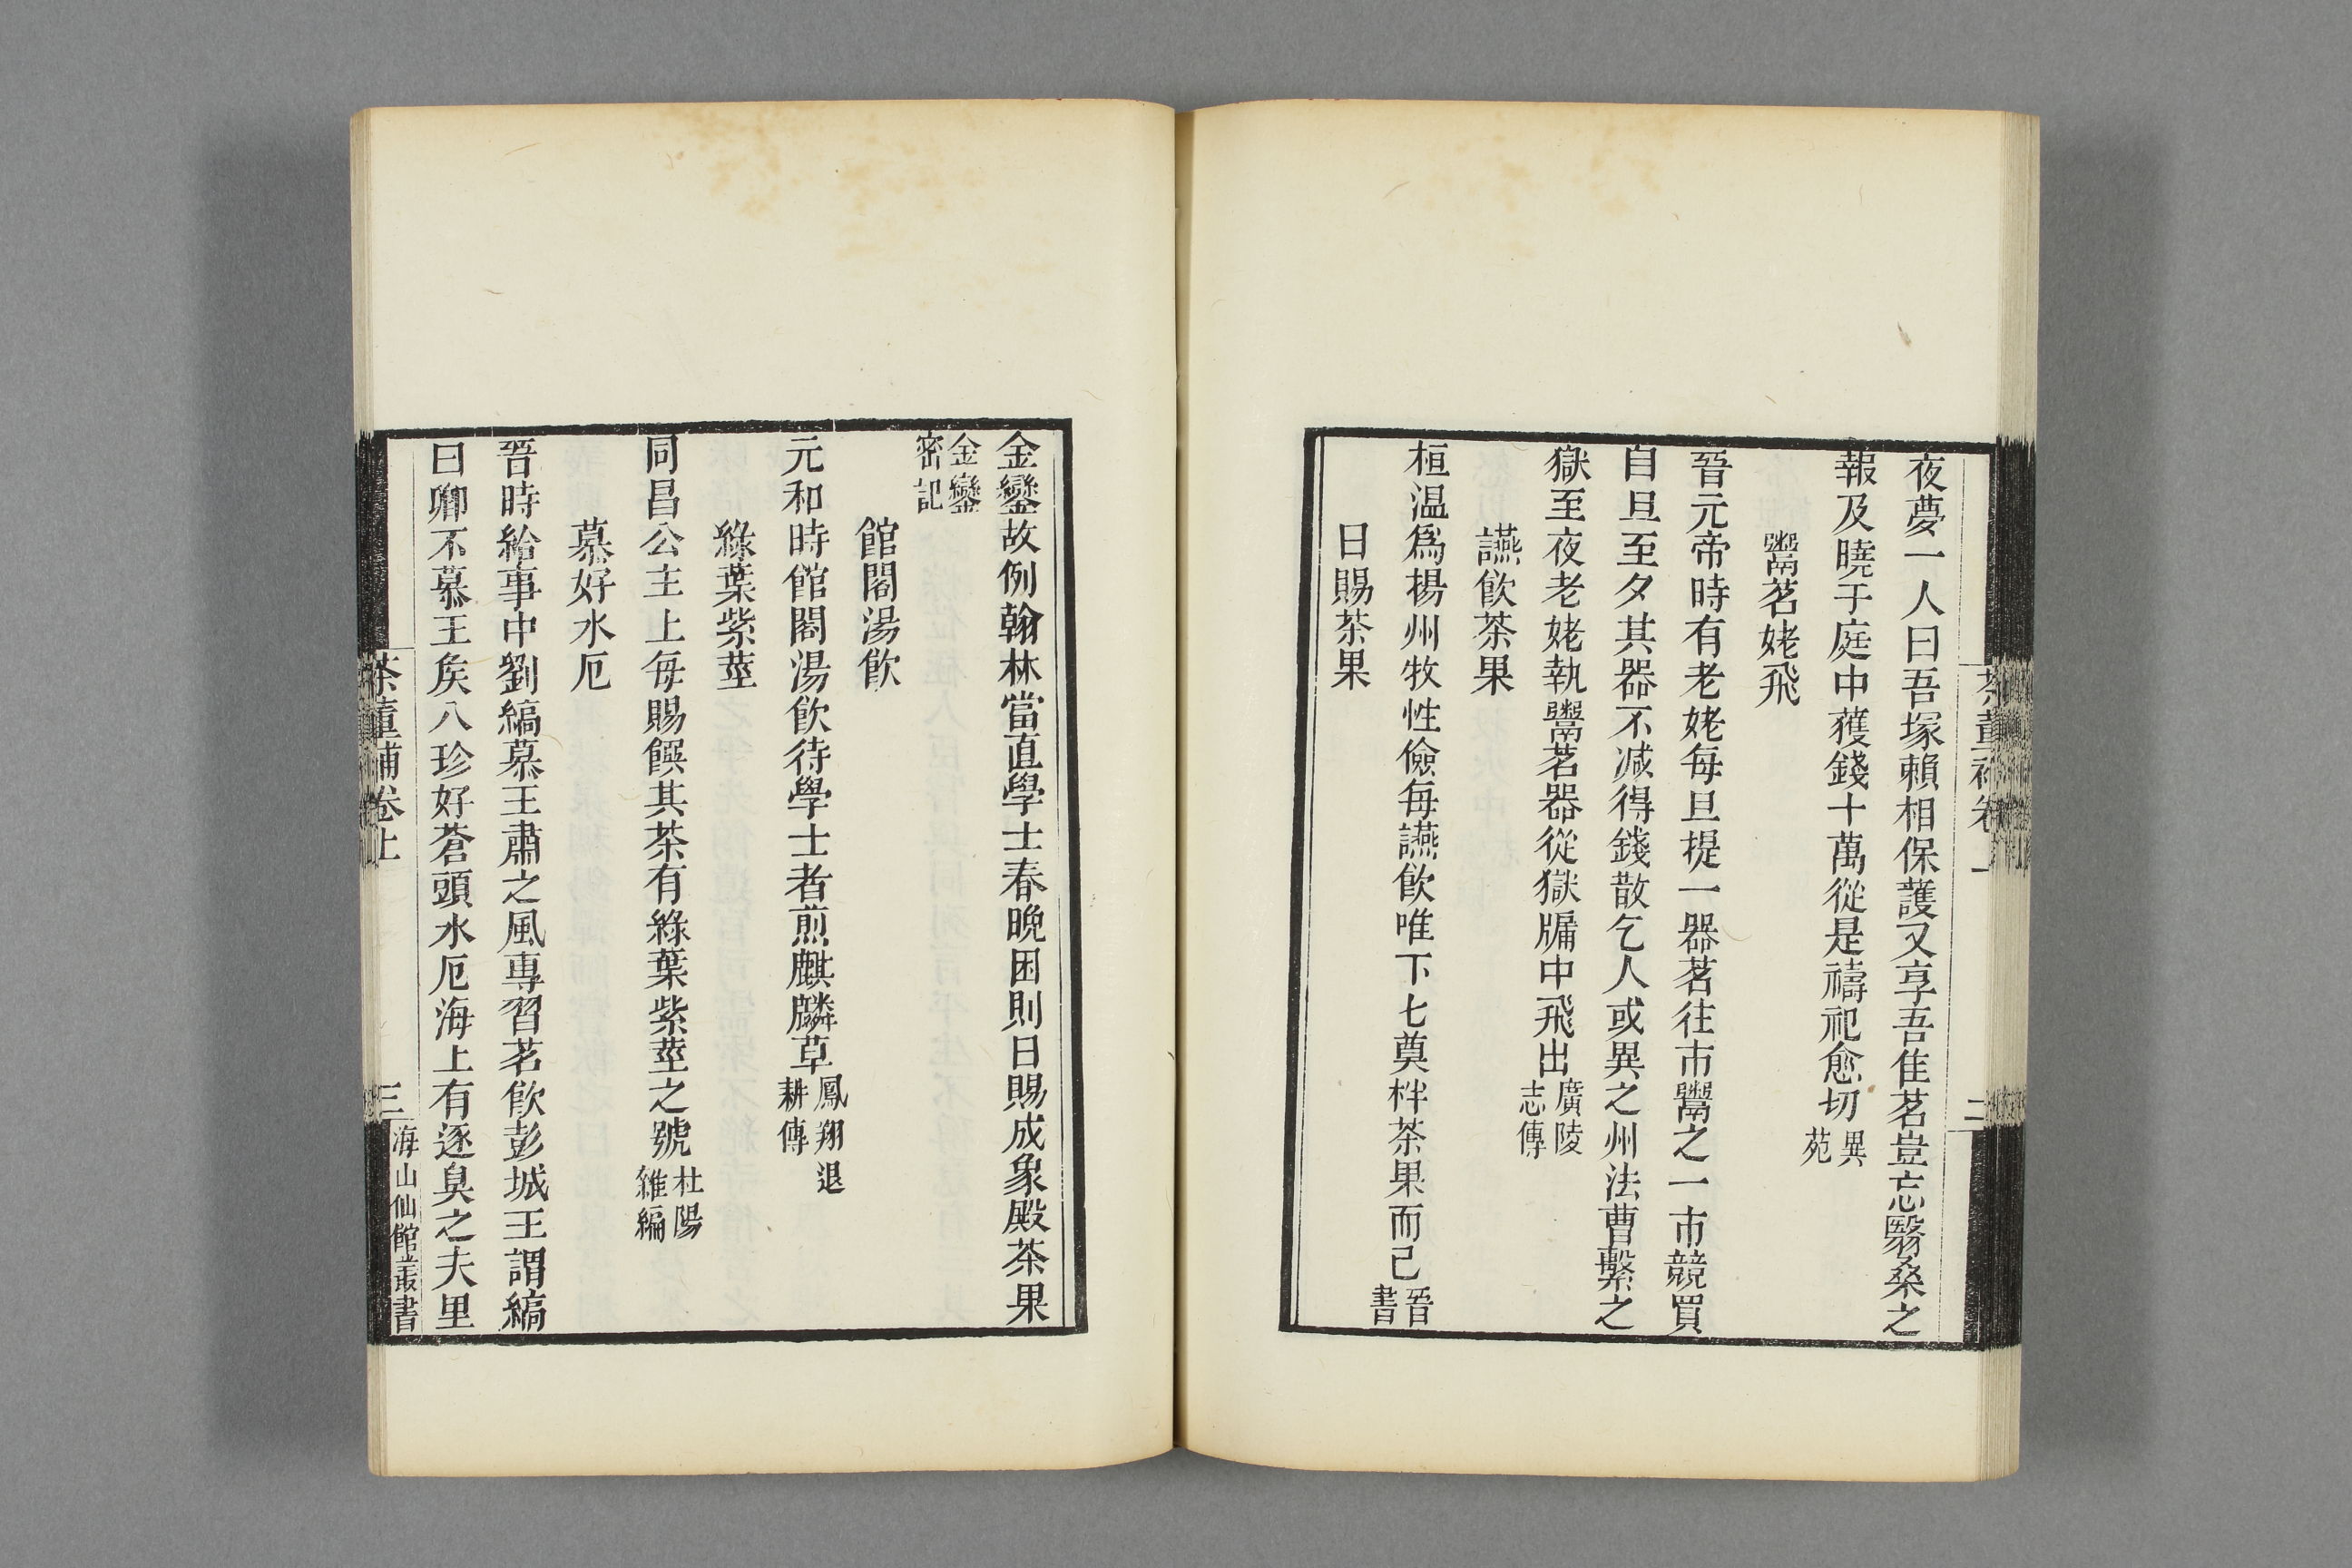 夜夢一人曰吾塚賴相保護又享吾佳茗豈忘翳桑之
報及曉于庭中獲錢十萬從是禱祀愈切異苑
鬻茗姥飛
晉元帝時有老姥每旦提一器茗往市鬻之一市競買
自旦至夕其器不減得錢散乞人或異之州法曹繫之
獄至夜老姥執鬻茗器從獄牖中飛出廣陵志傳
讌飮茶果
桓温爲楊州牧性儉每讌飮唯下七奠柈茶果而已晉書
日賜茶果
金鑾故例翰林當直學士春晚困則日賜成象殿茶果
金鑾密記
館閣湯飮
元和時館閣湯飮待學士者煎麒麟草鳳翔退耕傳
綠葉紫莖
同昌公主上每賜饌其茶有綠葉紫莖之號杜陽雜編
慕好水厄
晉時給事中劉縞慕王肅之風專習茗飮彭城王謂縞
曰卿不慕王矦八珍好蒼頭水厄海上有逐臭之夫里
茶董補卷上
三
海山仙館叢書